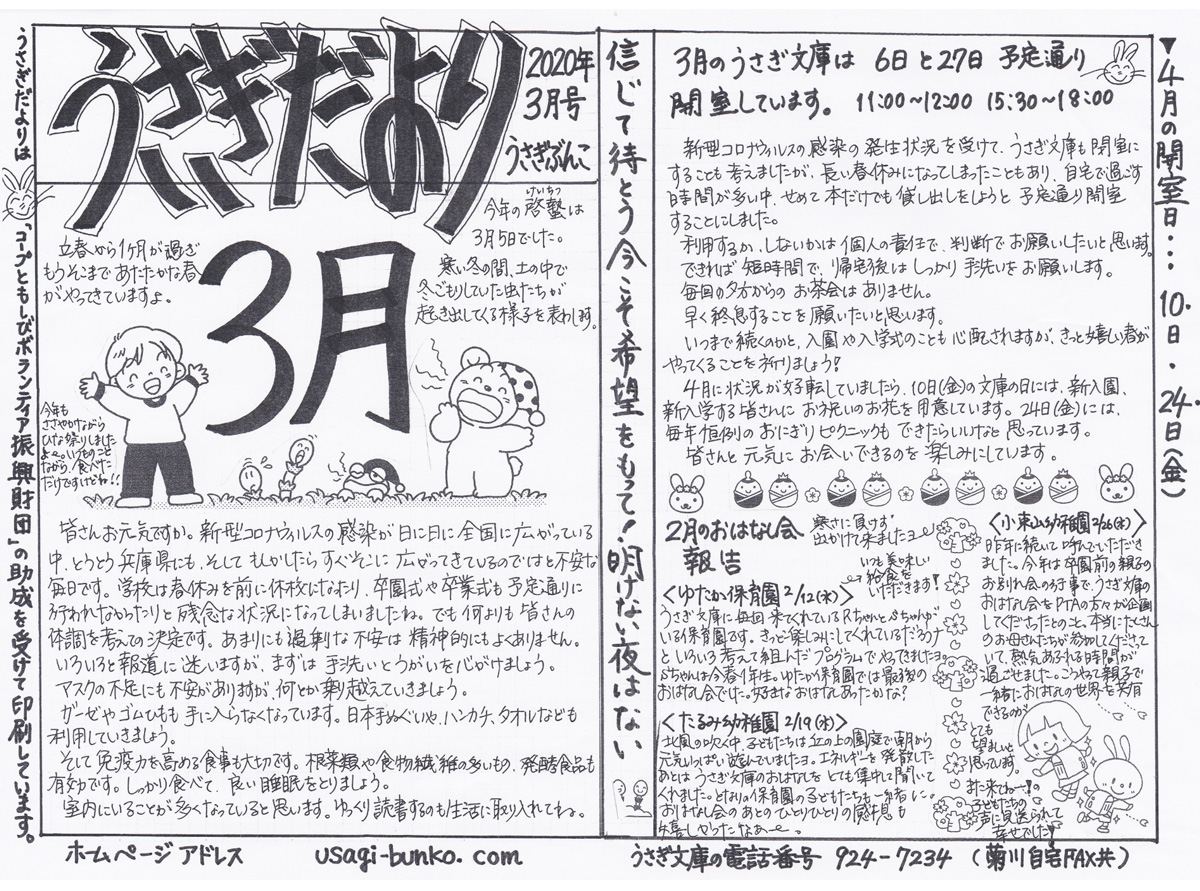 うさぎだより
2020年
3月号
うさぎぶんこ
うさぎだよりは「コープともしびボランティア振興財団」の助成を受けて印刷しています。
立春から1ヶ月が過ぎ
もうそこまであたたかな春
がやってきていますよ。
3月
けいちつ
今年の啓蟄は
3月5日でした。
寒い冬の間、土の中で
冬ごもりしていた虫たちが
起き出してくる様子を表わします。
今年も
ささやかながら
ひな祭りしました
よ〜。いつものこと
ながら、食べた
だけですけどね!!
皆さんお元気ですか。新型コロナウィルスの感染が日に日に全国に広がっている
中、とうとう兵庫県にも、そしてもしかしたらすぐそこに広がってきているのではと不安な
毎日です。学校は春休みを前に休校になったり、卒園式や卒業式も予定通りに
行われなかったりと残念な状況になってしまいましたね。でも何よりも皆さんの
体調を考えての決定です。あまりにも過剰な不安は精神的にもよくありません。
いろいろと報道に迷いますが、まずは手洗いとうがいを心がけましょう。
マスクの不足にも不安がありますが、何とか乗り越えていきましょう。
ガーゼやゴムひもも手に入らなくなっています。日本手ぬぐいや、ハンカチ、タオルなども
利用していきましょう。
そして免疫力を高める食事も大切です。根菜類や食物繊維の多いもの、発酵食品も
有効です。しっかり食べて、良い睡眠をとりましょう。
室内にいることが多くなっていると思います。ゆっくり読書するのも生活に取り入れてね。
信じて待とう今こそ希望をもって!明けない夜はない
3月のうさぎ文庫は 6日と27日 予定通り
開室しています。 11:00~12:00 15:30~18:00
新型コロナウィルスの感染の発生状況を受けて、うさぎ文庫も閉室に
することも考えましたが、長い春休みになってしまったこともあり、自宅で過ごす
時間が多い中、せめて本だけでも貸し出しをしようと予定通り開室
することにしました。
利用するか、しないかは個人の責任で、判断でお願いしたいと思います。
できれば短時間で、帰宅後はしっかり手洗いをお願いします。
毎回の夕方からのお茶会はありません。
早く終息することを願いたいと思います。
いつまで続くのかと、入園や入学式のことも心配されますが、きっと嬉しい春が
やってくることを祈りましょう!
4月に状況が好転していましたら、10日(金)の文庫の日には、新入園、
新入学する皆さんにお祝いのお花を用意しています。24日(金)には、
毎年恒例のおにぎりピクニックもできたらいいなと思っています。
皆さんと元気にお会いできるのを楽しみにしています。
▼4月の開室日…10日・24日(金)
2月のおはなし会
報告
寒さに負けず
出かけて来ましたよ〜
いつも美味しい
給食を
いただきます!
<ゆたか保育園 2/12(水)>
うさぎ文庫に毎回来てくれているRちゃんとSちゃんが
いる保育園です。きっと楽しみにしてくれているだろうナ
といろいろ考えて組んだプログラムでやってきましたヨ。
Sちゃんは今春1年生。ゆたか保育園では最後の
おはなし会でした。好きなおはなしあったかな?
<たるみ幼稚園 2/19(水)>
北風の吹く中、子どもたちは丘の上の園庭で朝から
元気いっぱい遊んでいましたヨ。エネルギーを発散した
あとはうさぎ文庫のおはなしをとても集中して聞いて
くれました。となりの保育園の子どもたちも一緒に。
おはなし会のあとのひとりひとりの感想も
嬉しかったなあ〜。
<小束山幼稚園 2/26(水)>
昨年に続いて呼んでいただき
ました。今年は卒園前の親子の
お別れ会の行事で、うさぎ文庫の
おはなし会をPTAの方々が企画
してくださったとのこと。本当にたくさん
のお母さんたちが参加してくださって
いて、熱気あふれる時間が
過ごせました。こうやって親子で
一緒におはなしの世界を共有
できるのが
とても
望ましいと
思っています。
また来てね〜!の
子どもたちの
声に見送られて
幸せでした!
ホームページ アドレス usagi-bunko.com
うさぎ文庫の電話番号 924-7234 (菊川自宅FAX共)